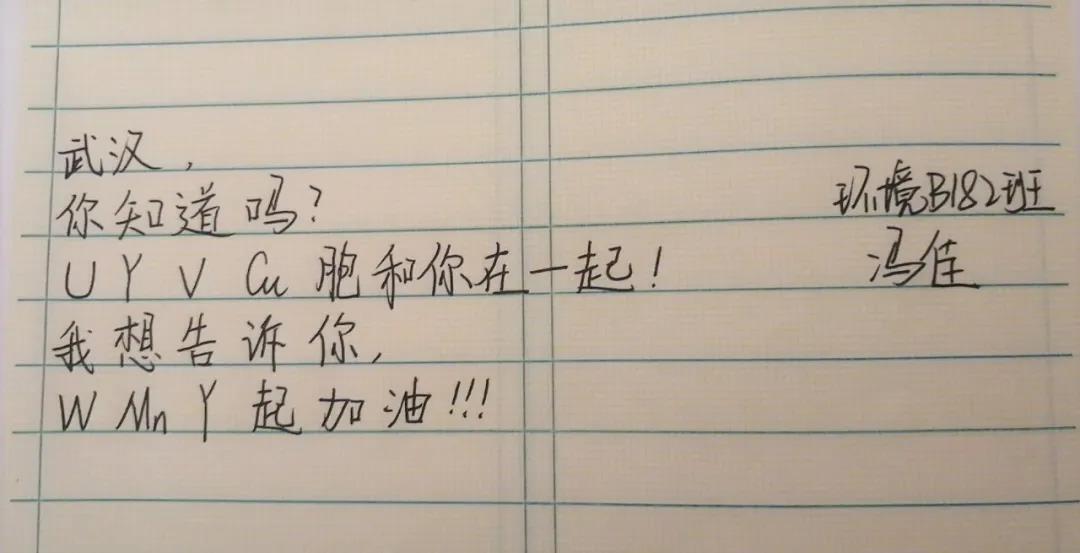 武汉,
你知道吗?
U Y V Cu 胞和你在一起!
我想告诉你,
W Mn Y 起加油!!!
环境B182班
冯佳